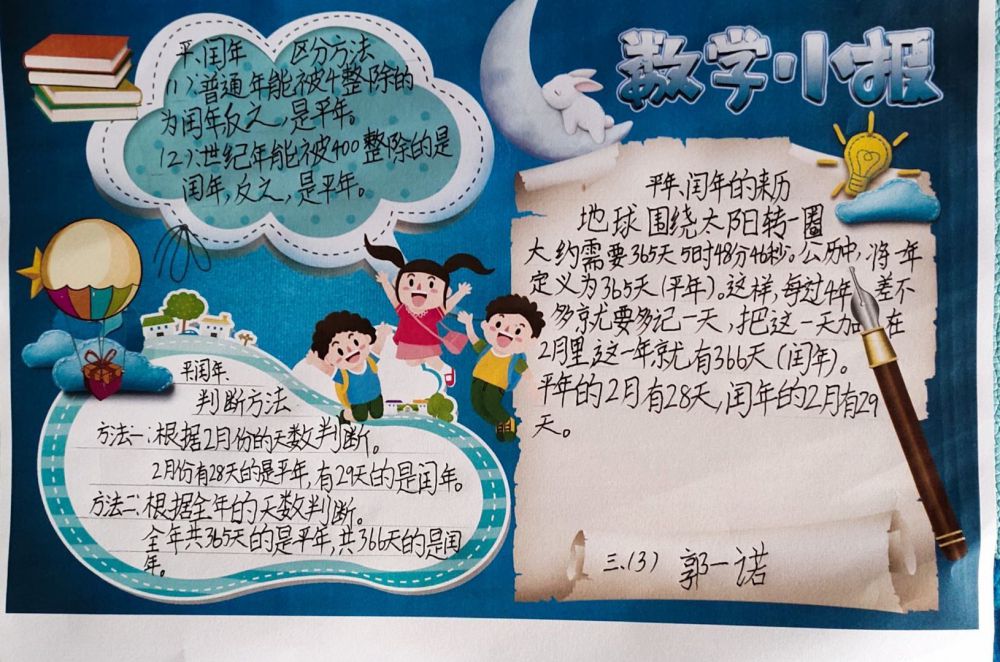 数学小报
平、闰年 区分方法
(1)、普通年能被4整除的
为闰年反之,是平年。
(2)、世纪年能被400整除的是
闰年,反之,是平年。
平闰年、
判断方法
方法一:根据2月份的天数判断。
2月份有28天的是平年,有29天的是闰年。
方法二:根据全年的天数判断。
全年共365天的是平年,共366天的是闰
年。
平年、闰年的来历
地球围绕太阳转一圈
大约需要365天5时48分46秒。公历中,将一年
定义为365天(平年)。这样,每过4年 差不
多就要多记一天,把这一天加 在
2月里这一年就有366天(闰年)。
平年的2月有28天,闰年的2月有29
天。
三、(3) 郭一诺